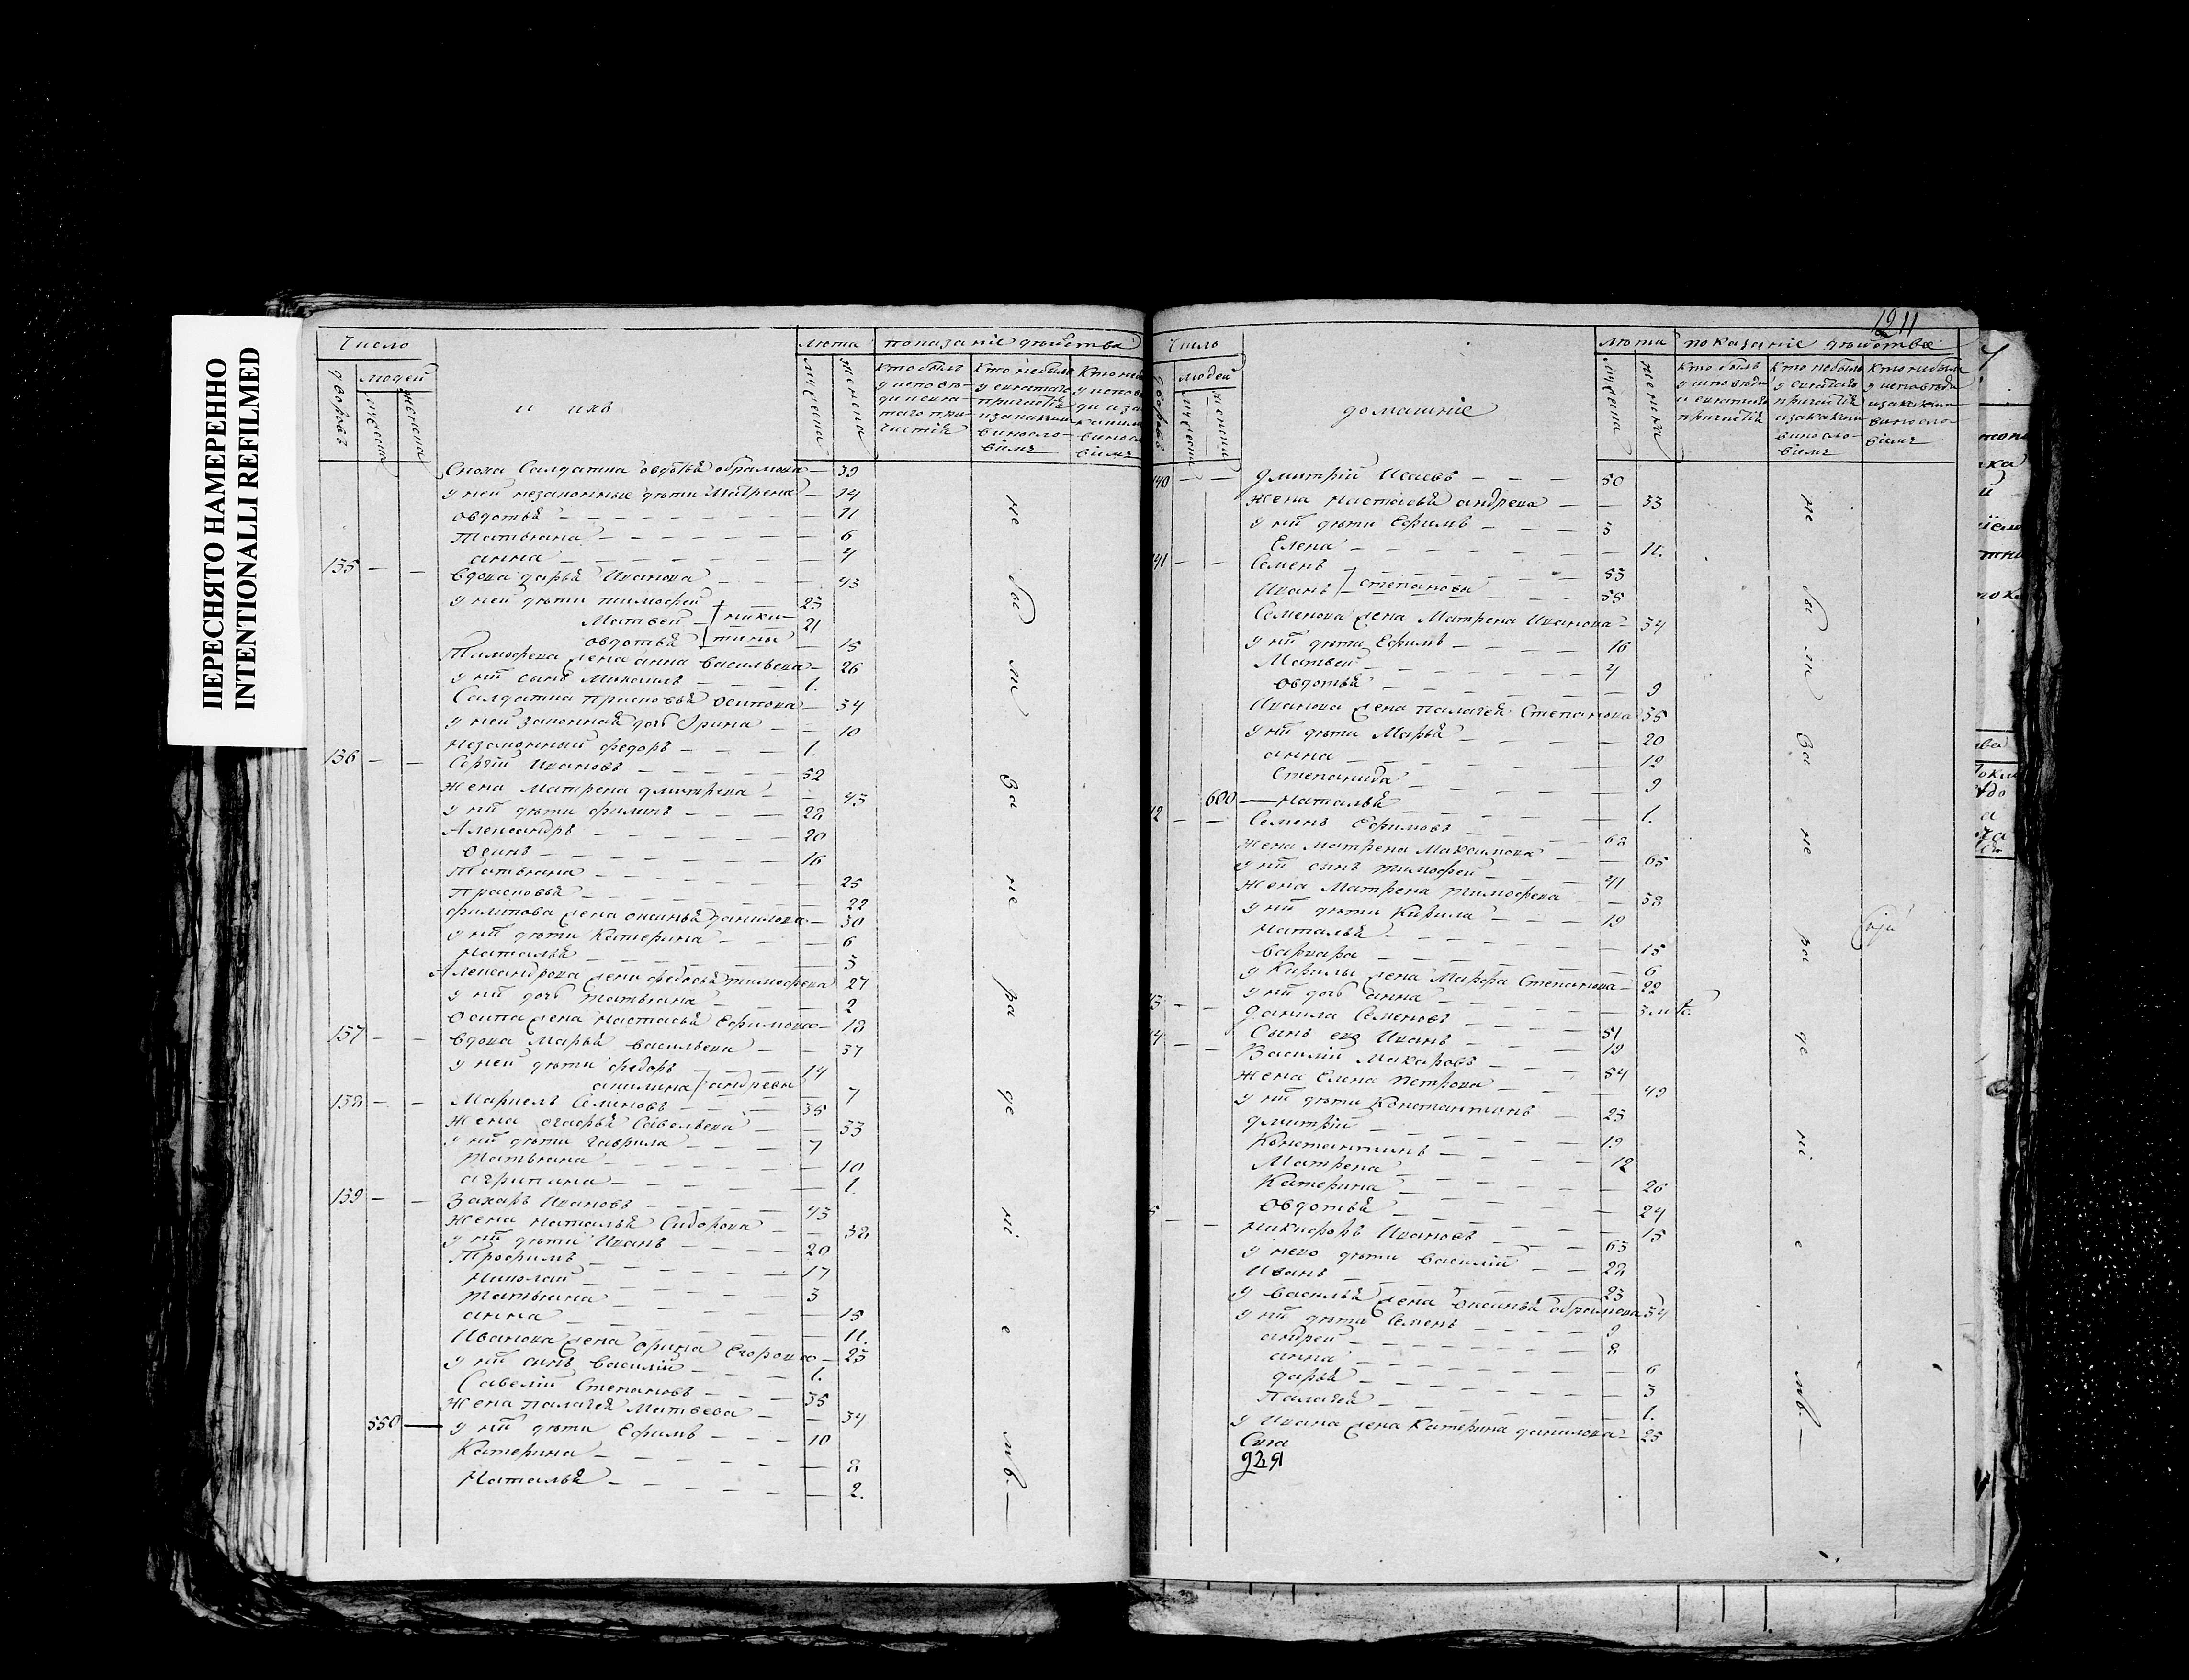 ПЕРЕСНЯТО НАМЕРЕННО
INTENTIONALLI REFILMED
Число
дворовъ
людей
мужеска
женска
и ихъ
лета
мужеска
женска
показаніе действа
кто былъ
у исповѣ-
ди и свя-
таго при-
частія
кто небылъ
у святаго
причастія
и за какимъ
винесло-
віемъ
Сноха Салдатка овдотья обрамова — 39
у ней незаконные дѣти Матрена — 14
овдотья — 11.
Татьяна — 6
анна — 4
135 — — вдова дарья Иванова — 43
у ней дѣти тимофей 23
Матвей 21 ники-
овдотья тины 15
Тимофева жена анна васильева — 26
у нихъ сынъ Михаилъ — 1.
Салдатка прасковья осипова — 34
у ней законная дочь Орина — 10
незаконный федоръ — 1.
136 — — Сергій Ивановъ — 52
жена Матрена дмитрева — 43
у нихъ дѣти филипъ — 28
Александръ — 20
осипъ — 16
Татьяна — 25
прасковья — 22
филипова жена аксинья данилова — 30
у нихъ дѣти Катерина — 6
Наталья — 3
Александрова жена федосья тимофева 27
у нихъ дочь татьяна — 2
осипа жена настасья Ефимова — 18
137 — — вдова Марья васильева — 37
у ней дѣти федоръ — 14
акилина андревы — 7
138 — — Маркелъ Семеновъ — 35
жена агафья Савельева — 33
у нихъ дѣти гаврила — 7
Татьяна — 10
агрипина — 1.
139 — — Захаръ Ивановъ — 43
жена наталья Сидорова — 38
у нихъ дѣти Иванъ — 20
Трофимъ — 17
Николай — 3
Татьяна — 15
анна — 11.
Иванова жена орина Егорова — 23
у нихъ сынъ василій — 1.
Савелій Степановъ — 35
жена палагея Матвева — 34
550 — у нихъ дѣти Ефимъ — 10
Катерина — 8
Наталья — 2.
не бы ли за не ра де ні е мъ. —
1211
Число
людей
домашніе
лета
мужеска
женска
показаніе действа
кто былъ
у исповѣди
и святаго
причастія
кто небылъ
у святаго
причастія
и за какимъ
винесло-
віемъ
кто небылъ
у исповѣди
и за какимъ
винесло
віемъ
140 — — дмитрій Исаевъ — 50
жена настасья андрева — 33
у нихъ дѣти Ефимъ — 3
Елена — 11.
141 — — Семенъ — 53
Иванъ степановы — 35
Семенова жена Матрена Иванова — 34
у нихъ дѣти Ефимъ — 16
Матвей — 4
овдотья — 9
Иванова жена палагея Степанова 35
у нихъ дѣти Марья — 20
анна — 12
Степанида — 9
600 — наталья — 1.
42 — — Семенъ Ефимовъ — 68
жена матрена Максимова — 65
у нихъ сынъ тимофей — 41
жена Матрена тимофева — 38
у нихъ дѣти Кирила — 19
наталья — 15
варвара — 6
у Кирилы жена Марфа Степанова — 22
у нихъ дочь анна — 3 м
43 — — данила Семеновъ — 51
Сынъ его Иванъ — 19
44 — — Василій Макаровъ — 54
жена Елена петрова — 49
у нихъ дѣти Константинъ — 23
дмитрій — 19
Константинъ — 12
Матрена — 26
Катерина — 24
овдотья — 15
5 — — никифоръ Ивановъ — 63
у него дѣти василій — 28
Иванъ — 23
у василья жена аксинья обрамова 34
у нихъ дѣти Семенъ — 9
андрей — 8
анна — 6
дарья — 3
Палагея — 1.
у Ивана жена Катерина данилова — 25
не бы ли за не ра де ні е мъ. —